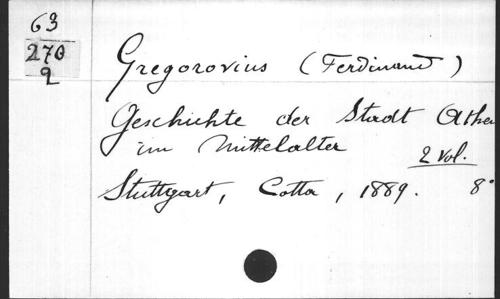 63
270
2
Gregorovius (Ferdinand)
Geschichte der Stadt Athe
im Mittelalter
2 vol.
Stuttgart, Cotta, 1889. 8°